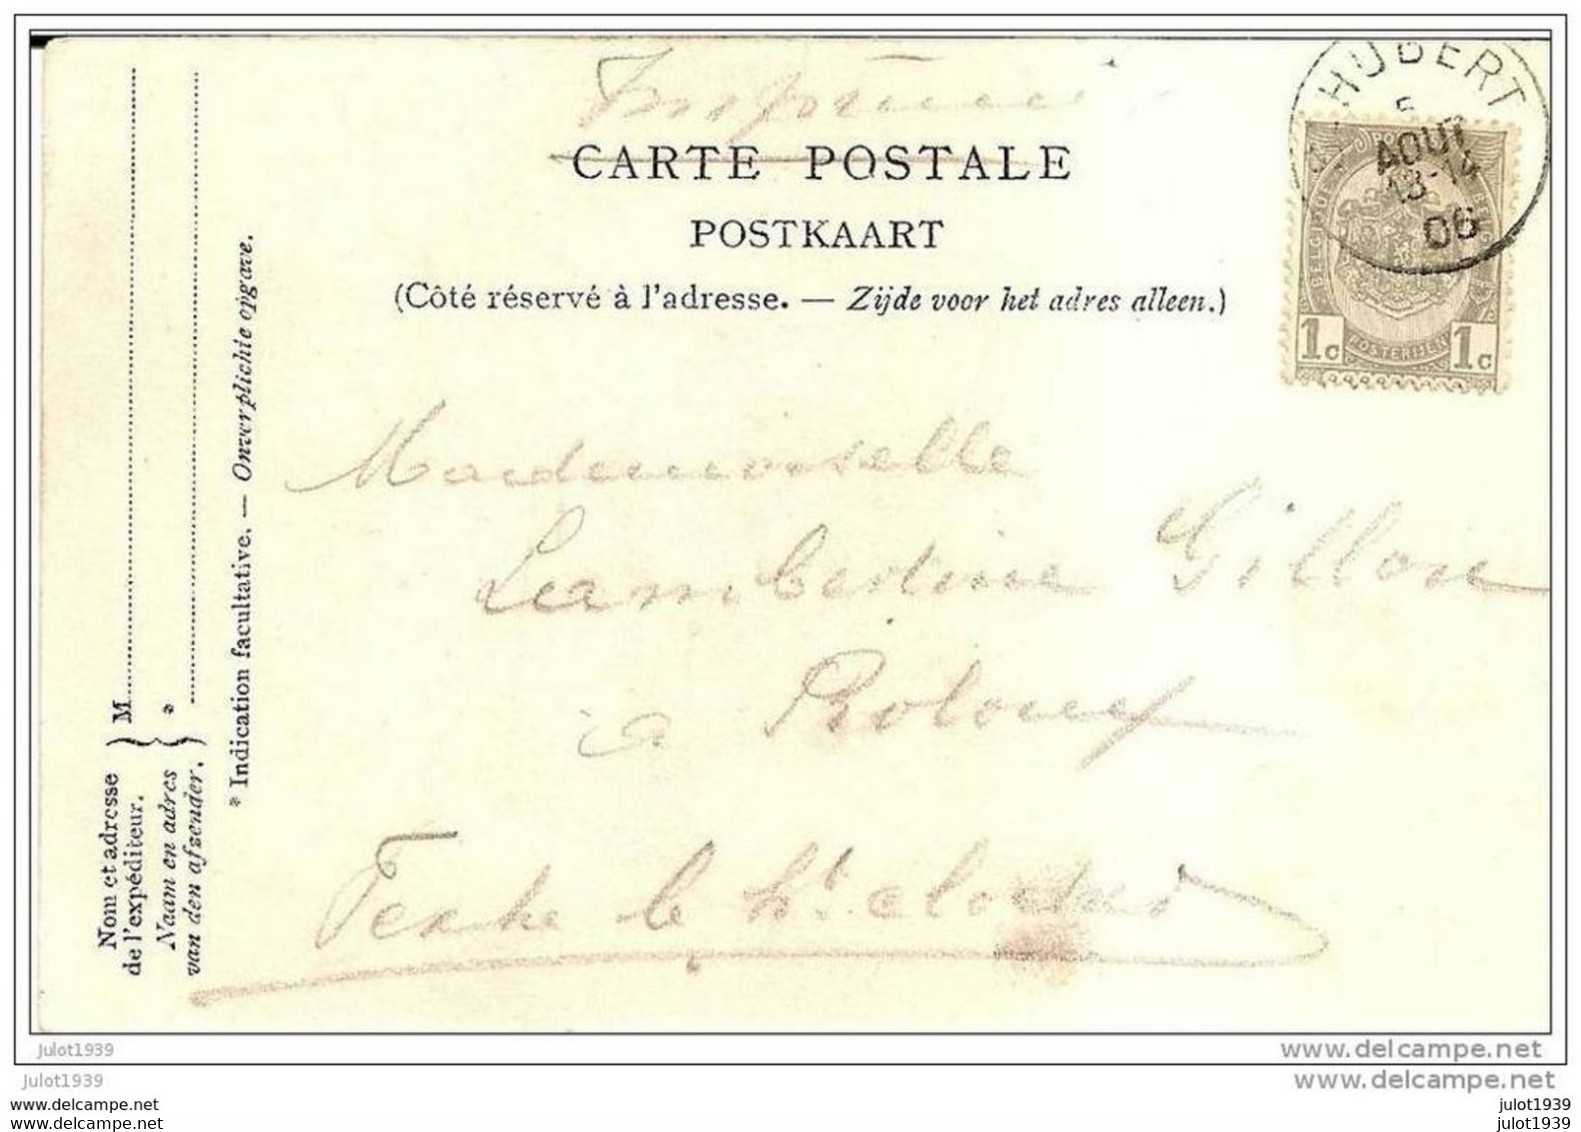 Imprimé
CARTE POSTALE
POSTKAART
(Côté réservé à l'adresse. — Zijde voor het adres alleen.)
HUBERT
5
AOUT
13-14
06
POSTERIJEN
1c 1c
Mademoiselle
Lambertine Gillon
à
Fexhe le Ht clocher
Nom et adresse
de l'expéditeur.
M
Naam en adres
van den afzender.
*
* Indication facultative. — Onverplichte opgave.
julot1939
www.delcampe.net
julot1939
www.delcampe.net
www.delcampe.net
julot1939
www.delcampe.net
julot1939